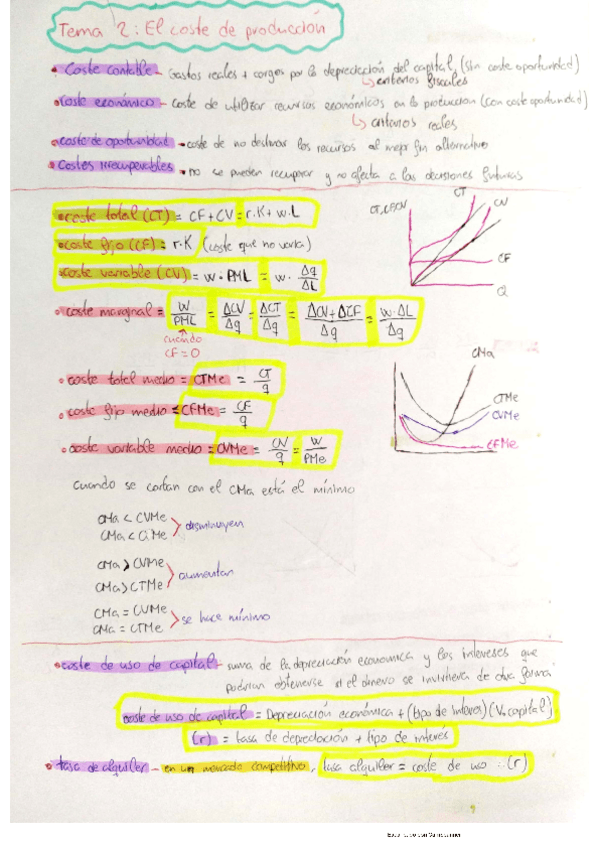 Tema 2: El coste de producción
• Coste contable - Gastos reales + cargos por la depreciación del capital, (sin coste oportunidad)
↳ criterios fiscales
• Coste económico - Coste de utilizar recursos económicos en la producción (con coste oportunidad)
↳ criterios reales
• coste de oportunidad - coste de no destinar los recursos al mejor fin alternativo
• Costes irrecuperables - no se pueden recuperar y no afecta a las decisiones futuras
• coste total (CT) = CF + CV = r.K + w.L
• coste fijo (CF) = r.K (coste que no varía)
• coste variable (CV) = w . PML = w . Δq/ΔL
CT, CF, CV
CT
CV
CF
Q
• coste marginal = W/PML = ΔCV/Δq = ΔCT/Δq = ΔCV+ΔCF/Δq = w.ΔL/Δq
cuando
CF = 0
• coste total medio = CTMe = CT/q
• coste fijo medio = CFMe = CF/q
• coste variable medio = CVMe = CV/q = W/PMe
CMa
CTMe
CVMe
CFMe
Cuando se cortan con el CMa está el mínimo
CMa < CVMe
CMa < CTMe
disminuyen
CMa > CVMe
CMa > CTMe
aumentan
CMa = CVMe
CMa = CTMe
se hace mínimo
• coste de uso de capital - suma de la depreciación económica y los intereses que
podrían obtenerse si el dinero se invirtiera de otra forma
coste de uso de capital = Depreciación económica + (tipo de interés)(V. capital)
(r) = tasa de depreciación + tipo de interés
• tasa de alquiler - en un mercado competitivo, tasa alquiler = coste de uso (r)